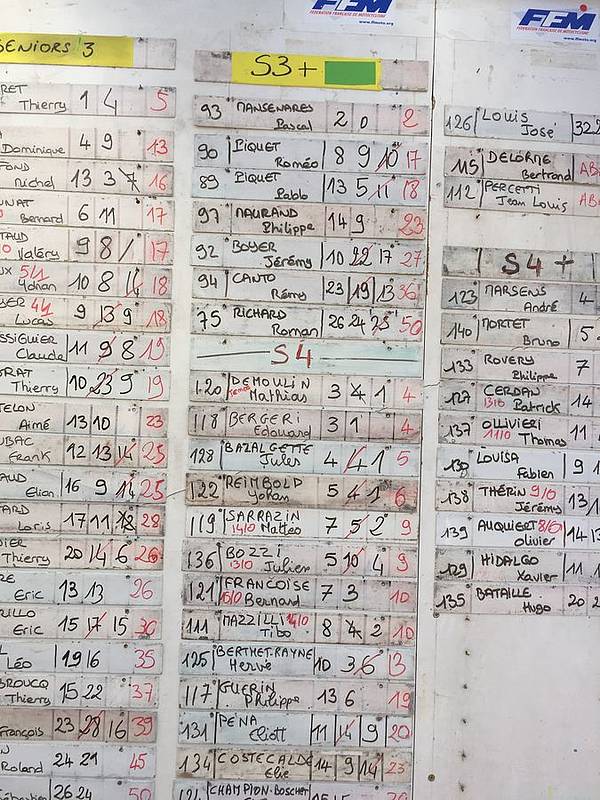 FFM
FEDERATION FRANÇAISE DE MOTOCYCLISME
www.ffmoto.org
FFM
FEDERATION FRANÇAISE DE MOTOCYCLISME
www.ffmoto.org
SENIORS 3
Thierry 1 4 5
Dominique 4 9 13
Michel 13 3 7 16
Bernard 6 11 17
Valéry 9 8 1 17
5/1 Yohan 10 8 14 18
4/1 Lucas 9 13 9 18
Claude 11 9 8 19
Thierry 10 23 9 19
Aimé 13 10 23
Frank 12 13 14 25
Elian 16 9 14 25
Loris 17 11 18 28
Thierry 20 14 6 26
Eric 13 13 26
Eric 15 17 15 30
Léo 19 16 35
Thierry 15 22 37
François 23 28 16 39
Roland 24 21 45
26 24 50
S3+
93 MANSENARES Pascal 2 0 2
90 PIQUET Roméo 8 9 10 17
89 PIQUET Pablo 13 5 11 18
97 MAURAND Philippe 14 9 23
92 BOYER Jérémy 10 22 17 27
94 CANTO Rémy 23 19 13 36
75 RICHARD Roman 26 24 25 50
S4
120 DEMOULIN Mathias 3 4 1 4
118 BERGERI Edouard 3 1 4
128 BAZALGETTE Jules 4 4 1 5
122 REIMBOLD Yohan 5 4 1 6
119 SARRAZIN 14/0 Matteo 7 5 2 9
136 BOZZI 13/0 Julien 5 10 4 9
121 FRANCOISE Bernard 7 3 10
111 MAZZILLI Tibo 8 4 2 10
125 BERTHET-RAYNE Hervé 10 3 6 13
117 GUERIN Philippe 13 6 19
131 PENA Eliott 11 14 9 20
134 COSTECALDE Elie 14 9 14 23
CHAMPION-BOSCHER
126 LOUIS José 32
115 DELORME Bertrand AB
112 PERCETTI Jean Louis AB
S4 +
123 MARSENS André 4
140 MORTET Bruno 5
133 ROVERY Philippe 7
127 CERDAN 13/0 Patrick 14
137 OLLIVIERI 11/0 Thomas 11
LOUISA Fabien 9 1
138 THÉRIN 9/0 Jérémy 13
139 AUQUIERT 8/0 Olivier 14 13
129 HIDALGO Xavier 11 1
135 BATAILLE Hugo 20 2